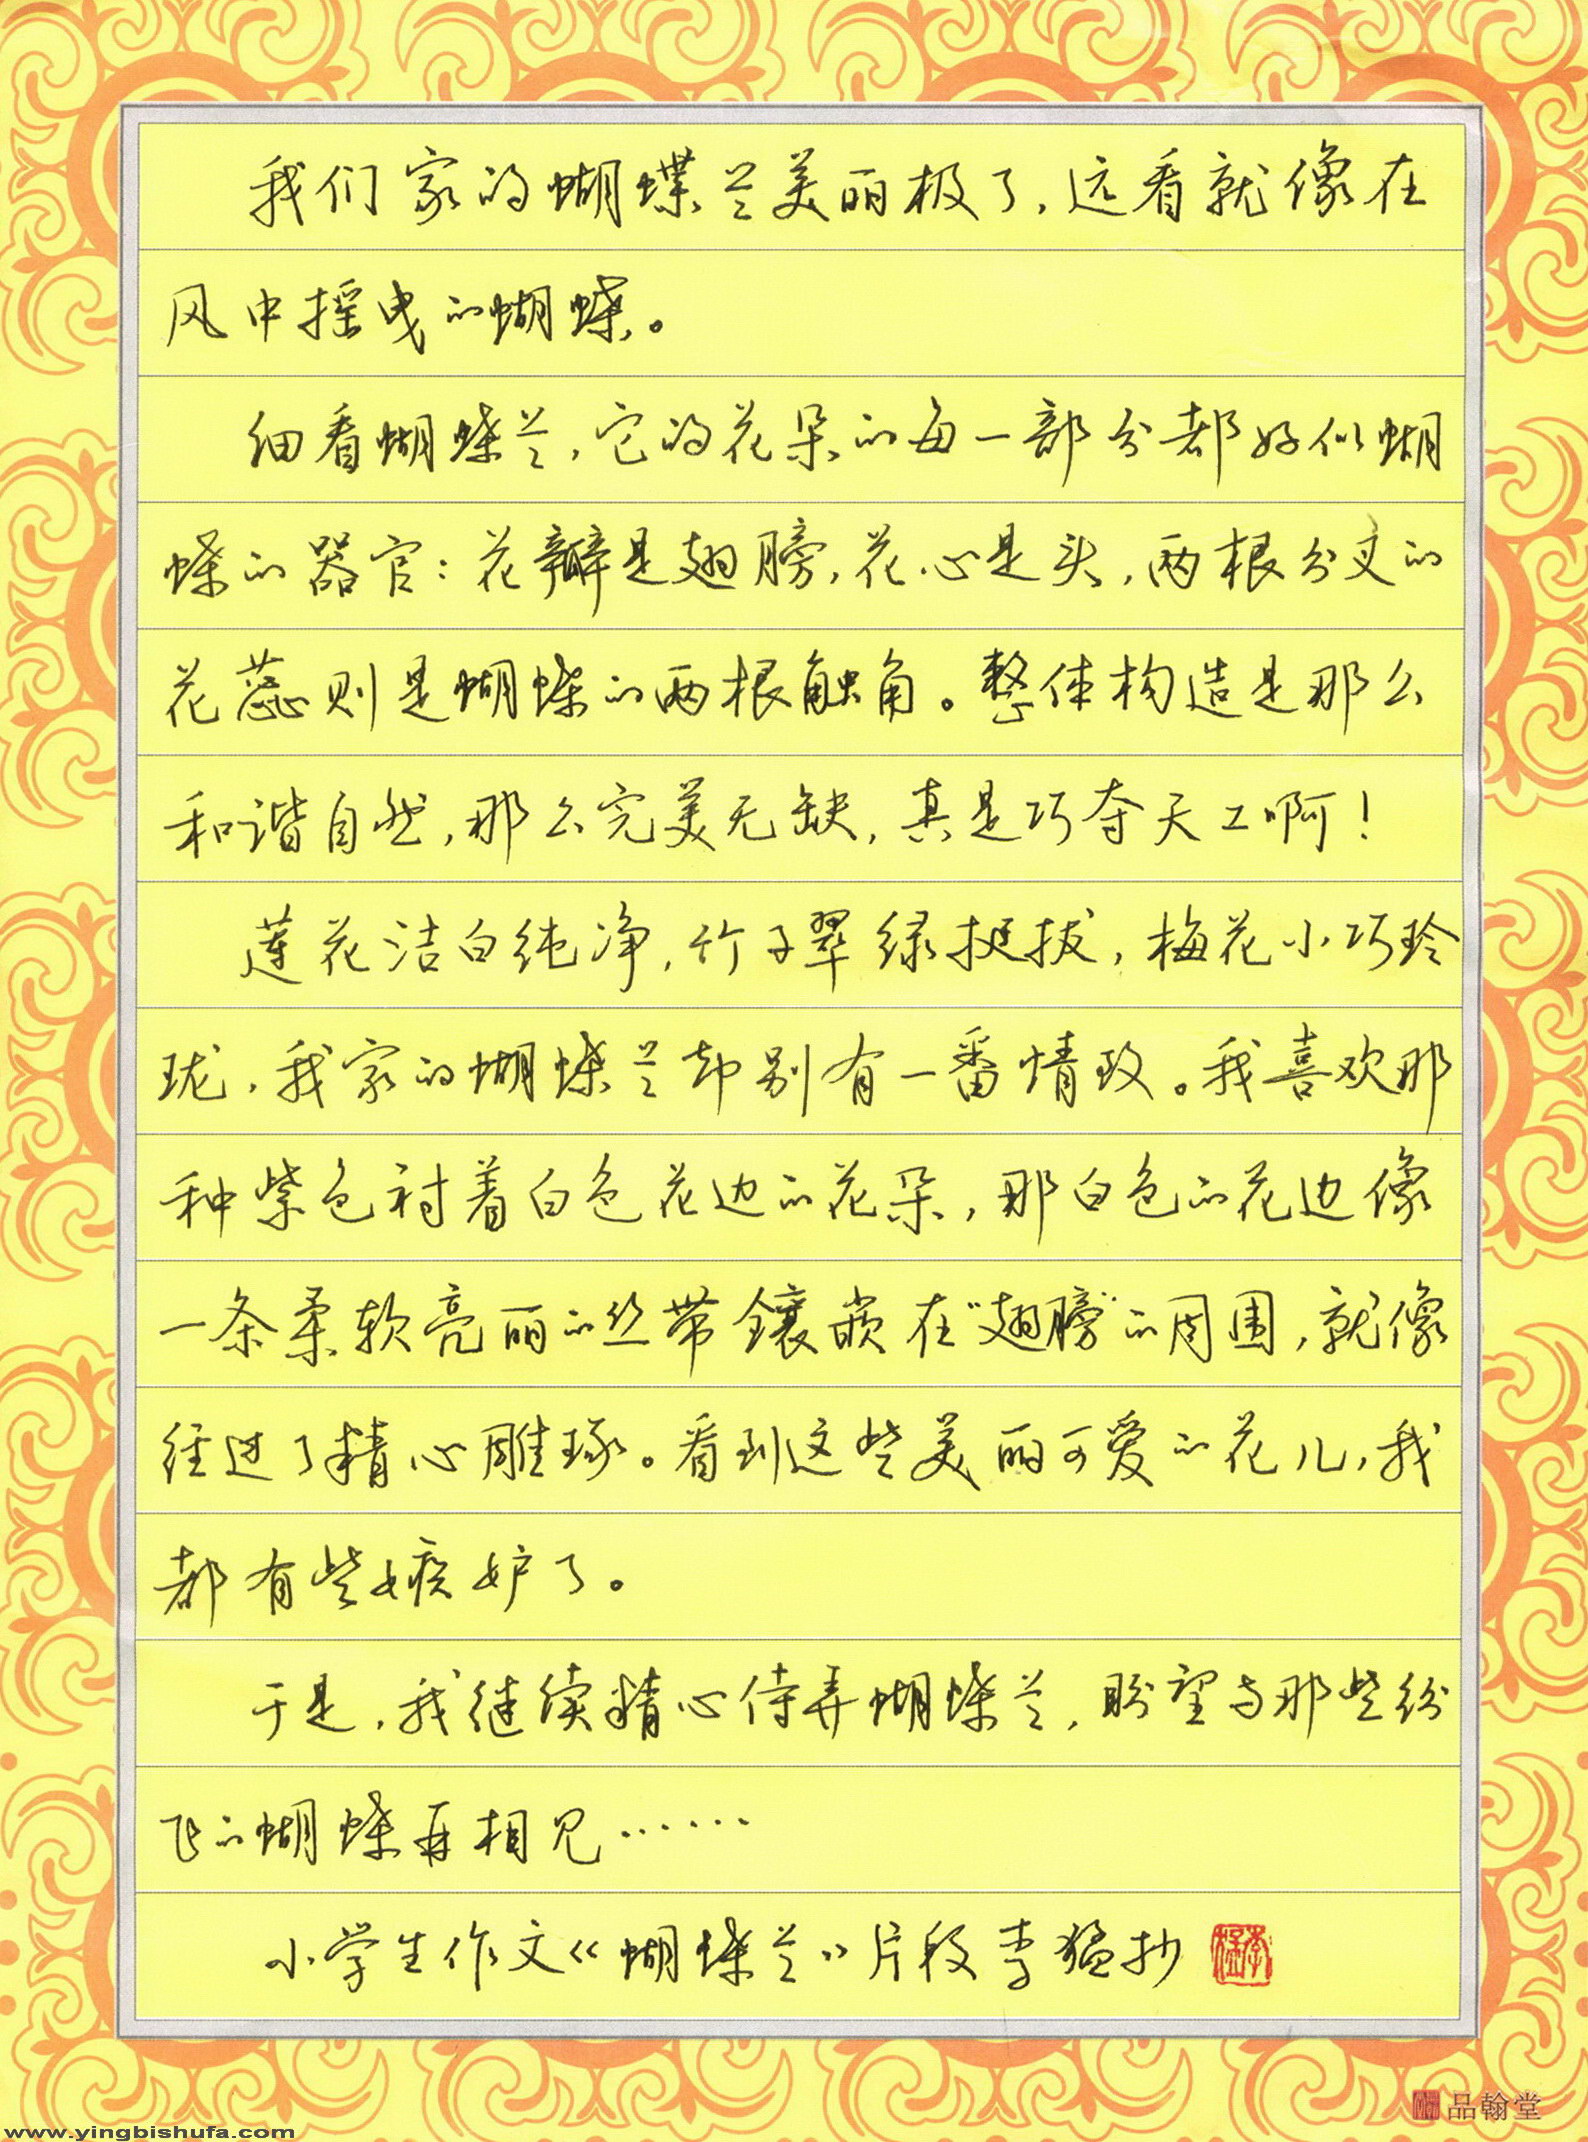 我们家的蝴蝶兰美丽极了，远看就像在
风中摇曳的蝴蝶。
细看蝴蝶兰，它的花朵的每一部分都好似蝴
蝶的器官：花瓣是翅膀，花心是头，两根分叉的
花蕊则是蝴蝶的两根触角。整体构造是那么
和谐自然，那么完美无缺，真是巧夺天工啊！
莲花洁白纯净，竹子翠绿挺拔，梅花小巧玲
珑，我家的蝴蝶兰却别有一番情致。我喜欢那
种紫色衬着白色花边的花朵，那白色的花边像
一条柔软亮丽的丝带镶嵌在“翅膀”的周围，就像
经过了精心雕琢。看到这些美丽可爱的花儿，我
都有些嫉妒了。
于是，我继续精心侍弄蝴蝶兰，盼望与那些纷
飞的蝴蝶再相见……
小学生作文《蝴蝶兰》片段李猛抄
品翰堂
www.yingbishufa.com